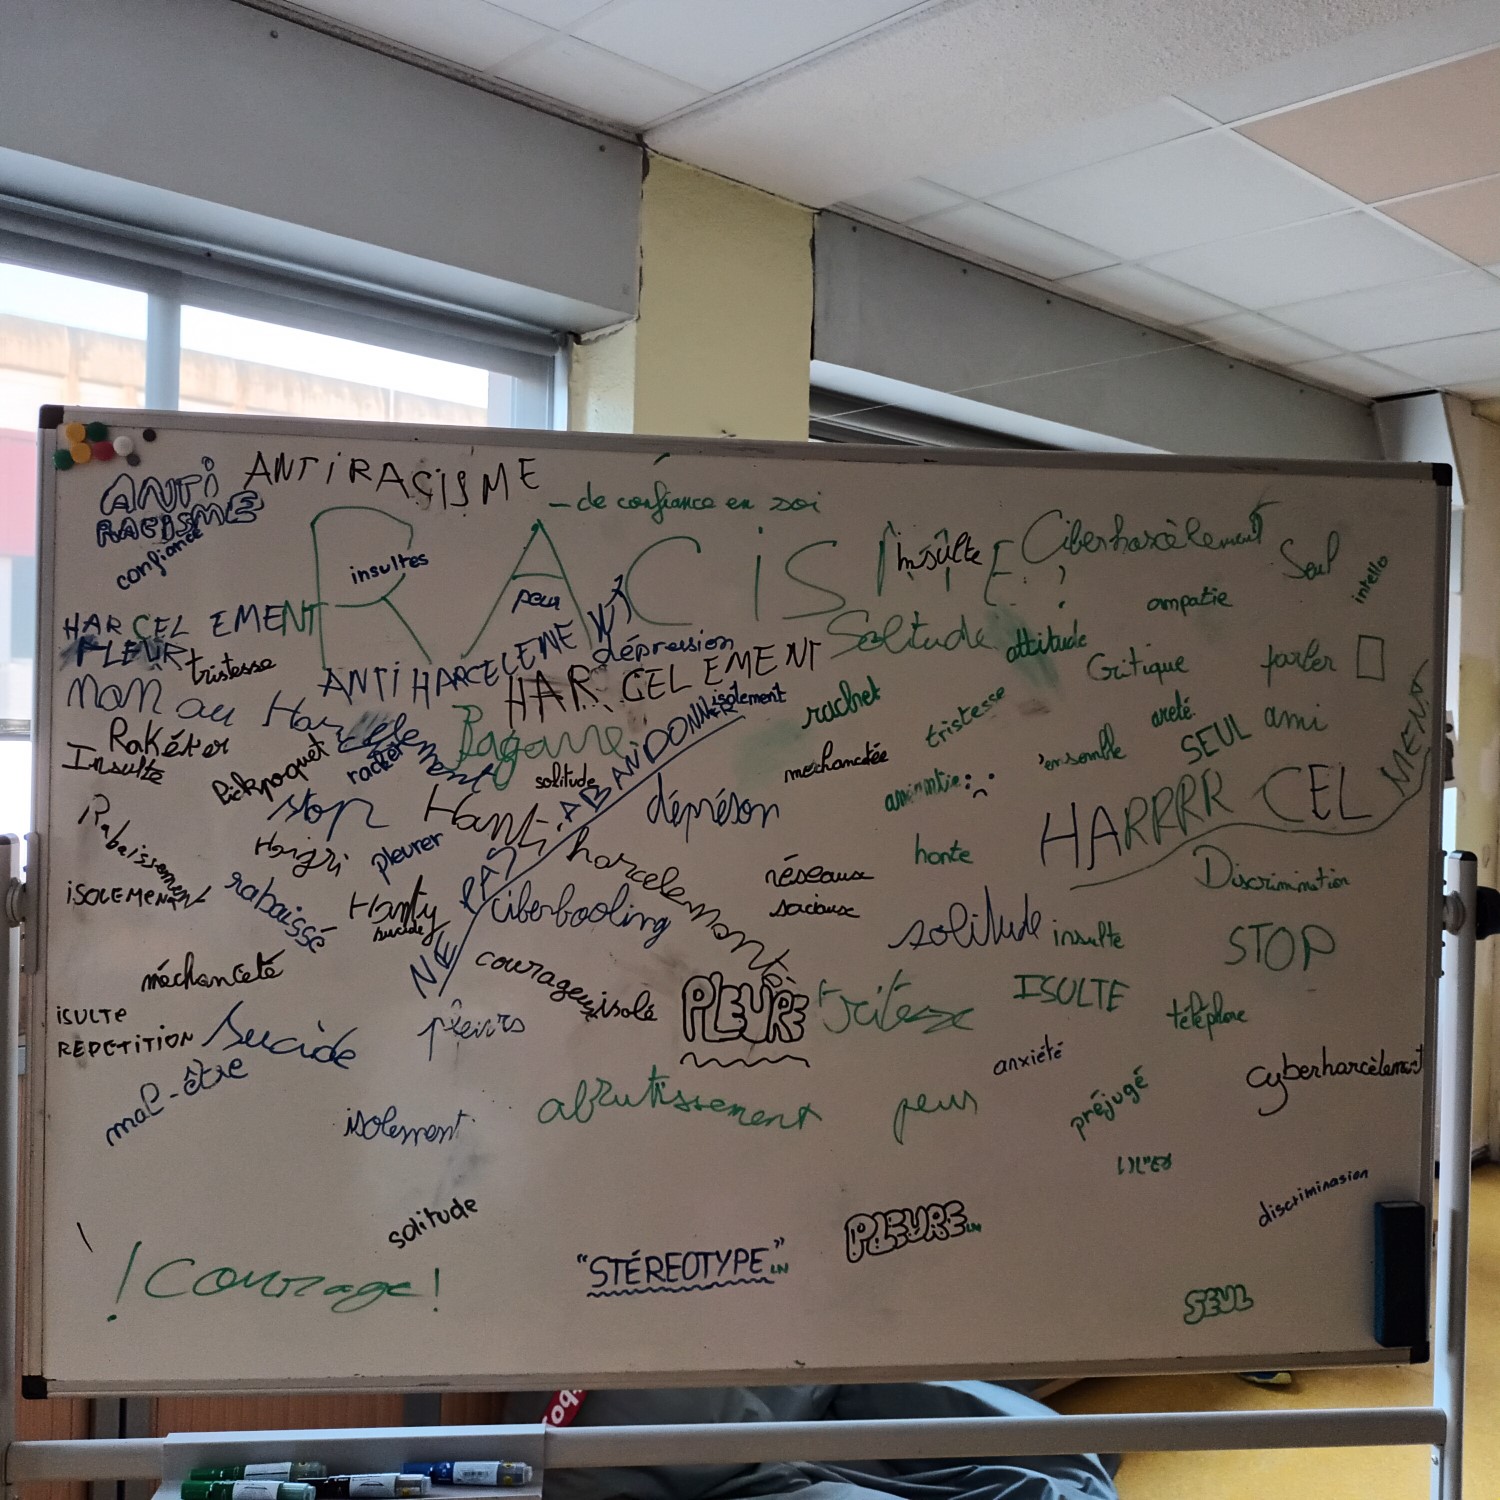 ANTIRACISME
ANTI
RACISME
- de confiance en soi
confiance
RACISME
insultes
peur
insulte
Ciberharcèlement
Seul
intello
HARCELEMENT
ampatie
FLEUR
tristesse
ANTI HARCELEMENT
dépression
Solitude
attitude
Critique
parler
Non au Harcelement
HARCELEMENT
isolement
rachet
tristesse
areté
SEUL
ami
Rakéter
Insulte
Pickpoquet
racket
Bagarre
solitude
NE PAS ABANDONNER
mechancetée
ensemble
stop
dépréson
HARRRR CEL MENT
Rabaissement
pleurer
Hanti harcelemont
honte
ISOLEMENT
rabaissé
Hanty
suicide
ciberbooling
réseaux
sociaux
Discrimination
solitude
insulte
STOP
méchanceté
courageux
isolé
PLEURE
tritesse
ISULTE
téléphone
ISULTE
REPETITION
Sucide
pleurs
anxiété
mal-être
cyberharcèlement
isolement
abrutissement
peur
préjugé
solitude
PLEURE LN
discriminasion
! Courage !
"STÉREOTYPE" LN
SEUL